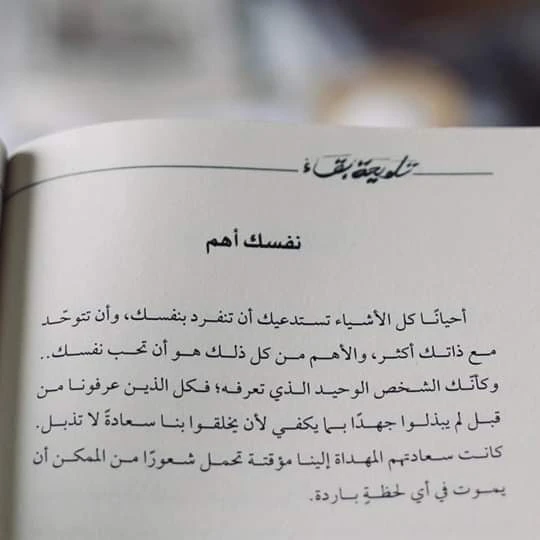 تلويحة بقاء
نفسك أهم
أحيانًا كل الأشياء تستدعيك أن تنفرد بنفسك، وأن تتوحّد
مع ذاتك أكثر، والأهم من كل ذلك هو أن تحب نفسك..
وكأنّك الشخص الوحيد الذي تعرفه؛ فكل الذين عرفونا من
قبل لم يبذلوا جهدًا بما يكفي لأن يخلقوا بنا سعادةً لا تذبل.
كانت سعادتهم المهداة إلينا مؤقتة تحمل شعورًا من الممكن أن
يموت في أي لحظةٍ باردة.